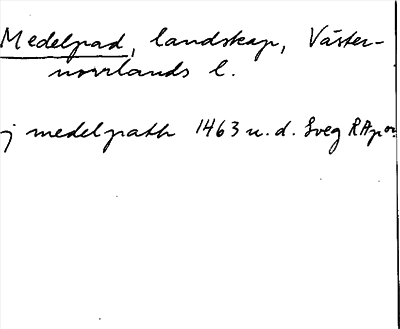 Medelpad, landskap, Väster-
norrlands l.
j medelpath 1463 u. d. Sveg RAp or.